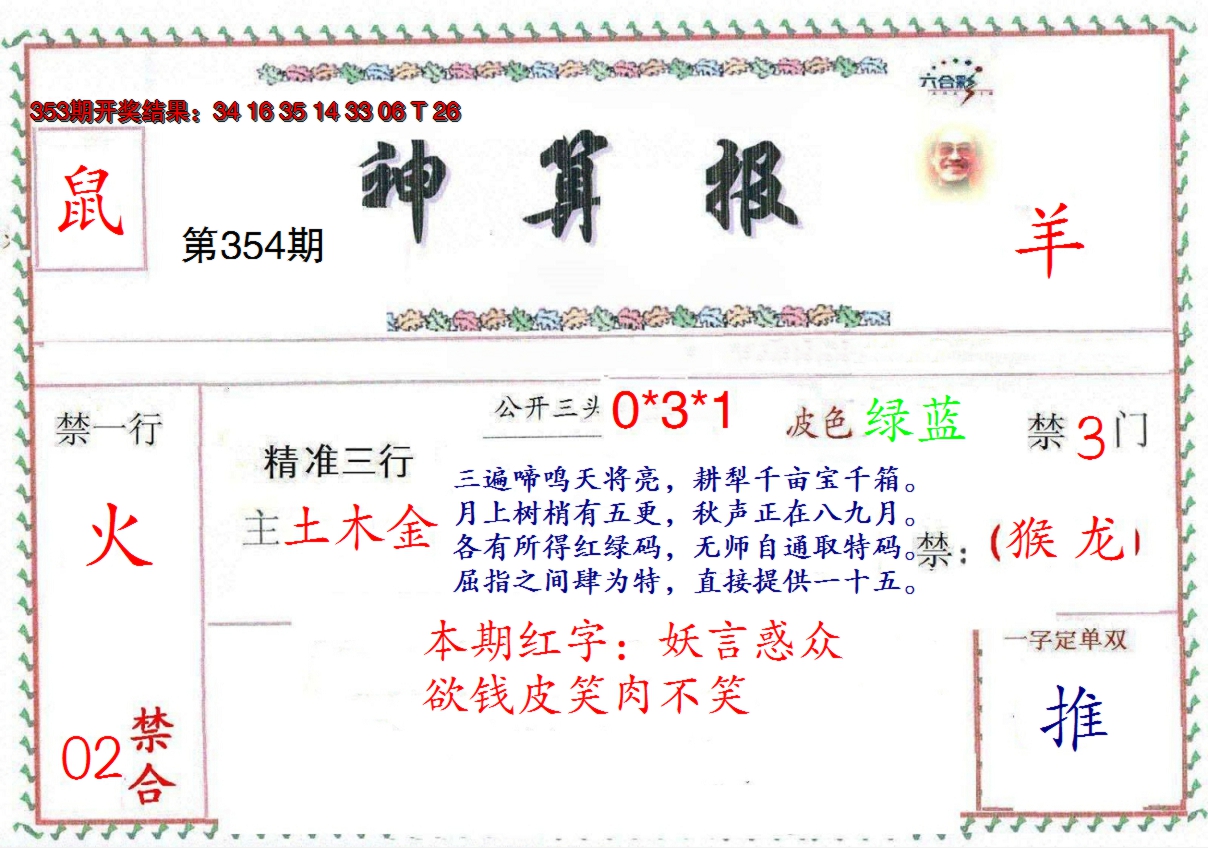 六合彩
353期开奖结果：34 16 35 14 33 06 T 26
神算报
鼠
第354期
羊
禁一行
火
02
禁合
精准三行
主土木金
公开三头 0*3*1
波色 绿蓝
三遍啼鸣天将亮，耕犁千亩宝千箱。
月上树梢有五更，秋声正在八九月。
各有所得红绿码，无师自通取特码。
屈指之间肆为特，直接提供一十五。
禁3门
禁：（猴 龙）
本期红字：妖言惑众
欲钱皮笑肉不笑
一字定单双
推